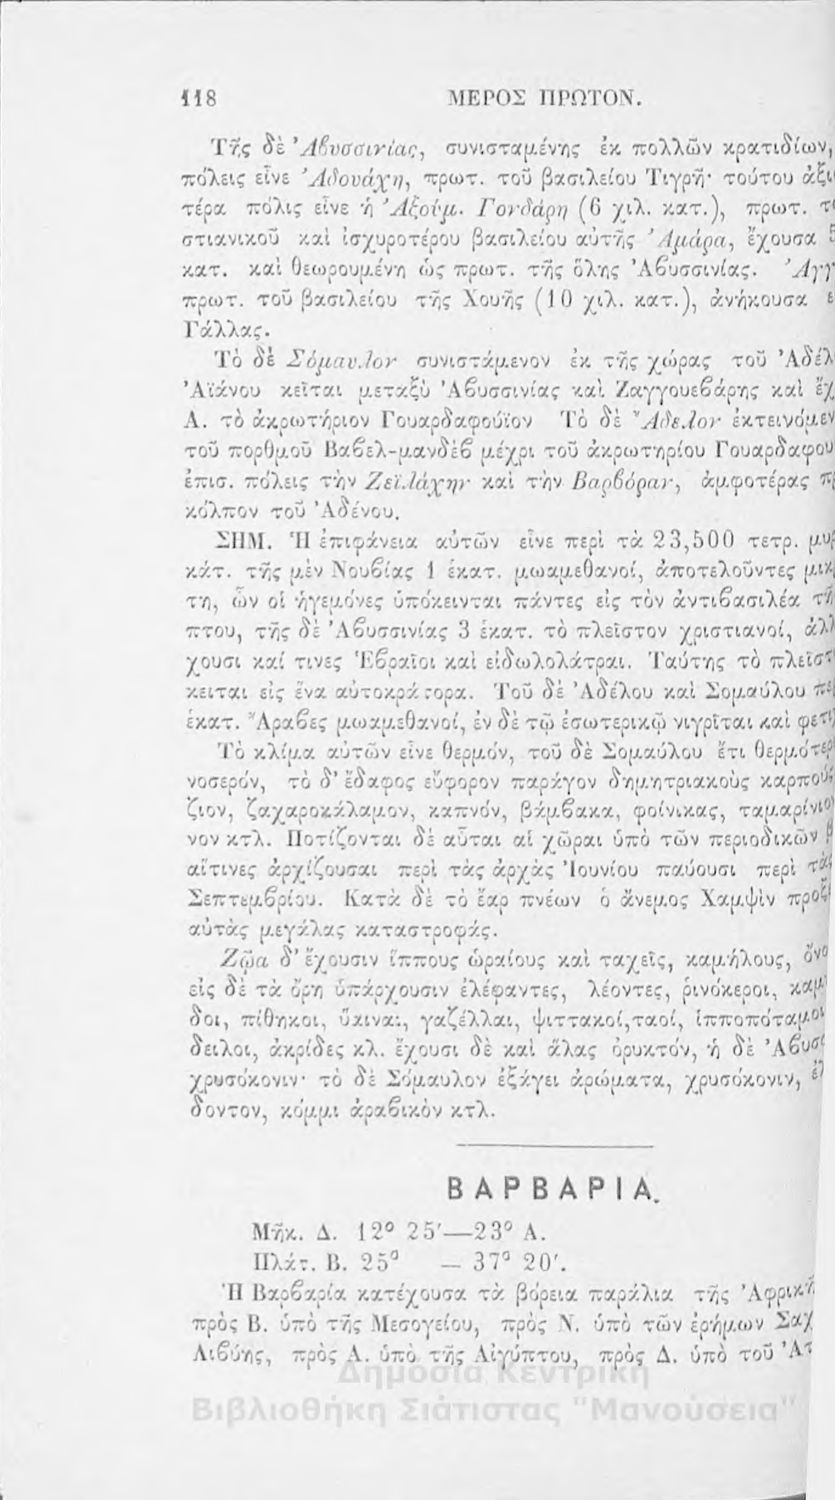 118 ΜΕΡΟΣ ΠΡΩΤΟΝ.
Τῆς δὲ Ἀβυσσινίας, συνισταμένης ἐκ πολλῶν κρατιδίων,
πόλεις εἶνε Ἀδουάχη, πρωτ. τοῦ βασιλείου Τιγρῆ· τούτου
τέρα πόλις εἶνε ἡ Ἀξούμ. Γονδάρη (6 χιλ. κατ.), πρωτ.
στιανικοῦ καὶ ἰσχυροτέρου βασιλείου αὐτῆς Ἀμάρα, ἔχουσα
κατ. καὶ θεωρουμένη ὡς πρωτ. τῆς ὅλης Ἀβυσσινίας.
πρωτ. τοῦ βασιλείου τῆς Χουῆς (10 χιλ. κατ.), ἀνήκουσα
Γάλλας.
Τὸ δὲ Σόμαυλον συνιστάμενον ἐκ τῆς χώρας τοῦ
Ἀϊάνου κεῖται μεταξὺ Ἀβυσσινίας καὶ Ζαγγουεβάρης καὶ
Α. τὸ ἀκρωτήριον Γουαρδαφούϊον Τὸ δὲ Ἄδελον
τοῦ πορθμοῦ Βαβελ-μανδὲβ μέχρι τοῦ ἀκρωτηρίου
ἐπισ. πόλεις τὴν Ζεϊλάχην καὶ τὴν Βαρβόραν, ἀμφοτέρας
κόλπον τοῦ Ἀδένου.
ΣΗΜ. Ἡ ἐπιφάνεια αὐτῶν εἶνε περὶ τὰ 23,500 τετρ.
κάτ. τῆς μὲν Νουβίας 1 ἑκατ. μωαμεθανοί, ἀποτελοῦντες
τη, ὧν οἱ ἡγεμόνες ὑπόκεινται πάντες εἰς τὸν ἀντιβασιλέα
πτου, τῆς δὲ Ἀβυσσινίας 3 ἑκατ. τὸ πλεῖστον χριστιανοί,
χουσι καί τινες Ἑβραῖοι καὶ εἰδωλολάτραι. Ταύτης τὸ
κειται εἰς ἕνα αὐτοκράτορα. Τοῦ δὲ Ἀδέλου καὶ Σομαύλου
ἑκατ. Ἄραβες μωαμεθανοί, ἐν δὲ τῷ ἐσωτερικῷ νιγρῖται καὶ
Τὸ κλίμα αὐτῶν εἶνε θερμόν, τοῦ δὲ Σομαύλου ἔτι
νοσερόν, τὸ δ' ἔδαφος εὔφορον παράγον δημητριακοὺς
ζιον, ζαχαροκάλαμον, καπνόν, βάμβακα, φοίνικας,
νον κτλ. Ποτίζονται δὲ αὗται αἱ χῶραι ὑπὸ τῶν περιοδικῶν
αἵτινες ἀρχίζουσαι περὶ τὰς ἀρχὰς Ἰουνίου παύουσι περὶ
Σεπτεμβρίου. Κατὰ δὲ τὸ ἔαρ πνέων ὁ ἄνεμος Χαμψὶν
αὐτὰς μεγάλας καταστροφάς.
Ζῶα δ' ἔχουσιν ἵππους ὡραίους καὶ ταχεῖς, καμήλους,
εἰς δὲ τὰ ὄρη ὑπάρχουσιν ἐλέφαντες, λέοντες, ῥινόκεροι,
δοι, πίθηκοι, ὕαιναι, γαζέλλαι, ψιττακοί, ταοί,
δειλοι, ἀκρίδες κλ. ἔχουσι δὲ καὶ ἅλας ὀρυκτόν, ἡ δὲ
χρυσόκονιν· τὸ δὲ Σόμαυλον ἐξάγει ἀρώματα, χρυσόκονιν,
δοντον, κόμμι ἀραβικὸν κτλ.
ΒΑΡΒΑΡΙΑ.
Μῆκ. Δ. 12° 25'—23° Α.
Πλάτ. Β. 25° — 37° 20'.
Ἡ Βαρβαρία κατέχουσα τὰ βόρεια παράλια τῆς
πρὸς Β. ὑπὸ τῆς Μεσογείου, πρὸς Ν. ὑπὸ τῶν ἐρήμων
Λιβύης, πρὸς Α. ὑπὸ τῆς Αἰγύπτου, πρὸς Δ. ὑπὸ τοῦ
Δημόσια Κεντρική
Βιβλιοθήκη Σιάτιστας "Μανούσεια"